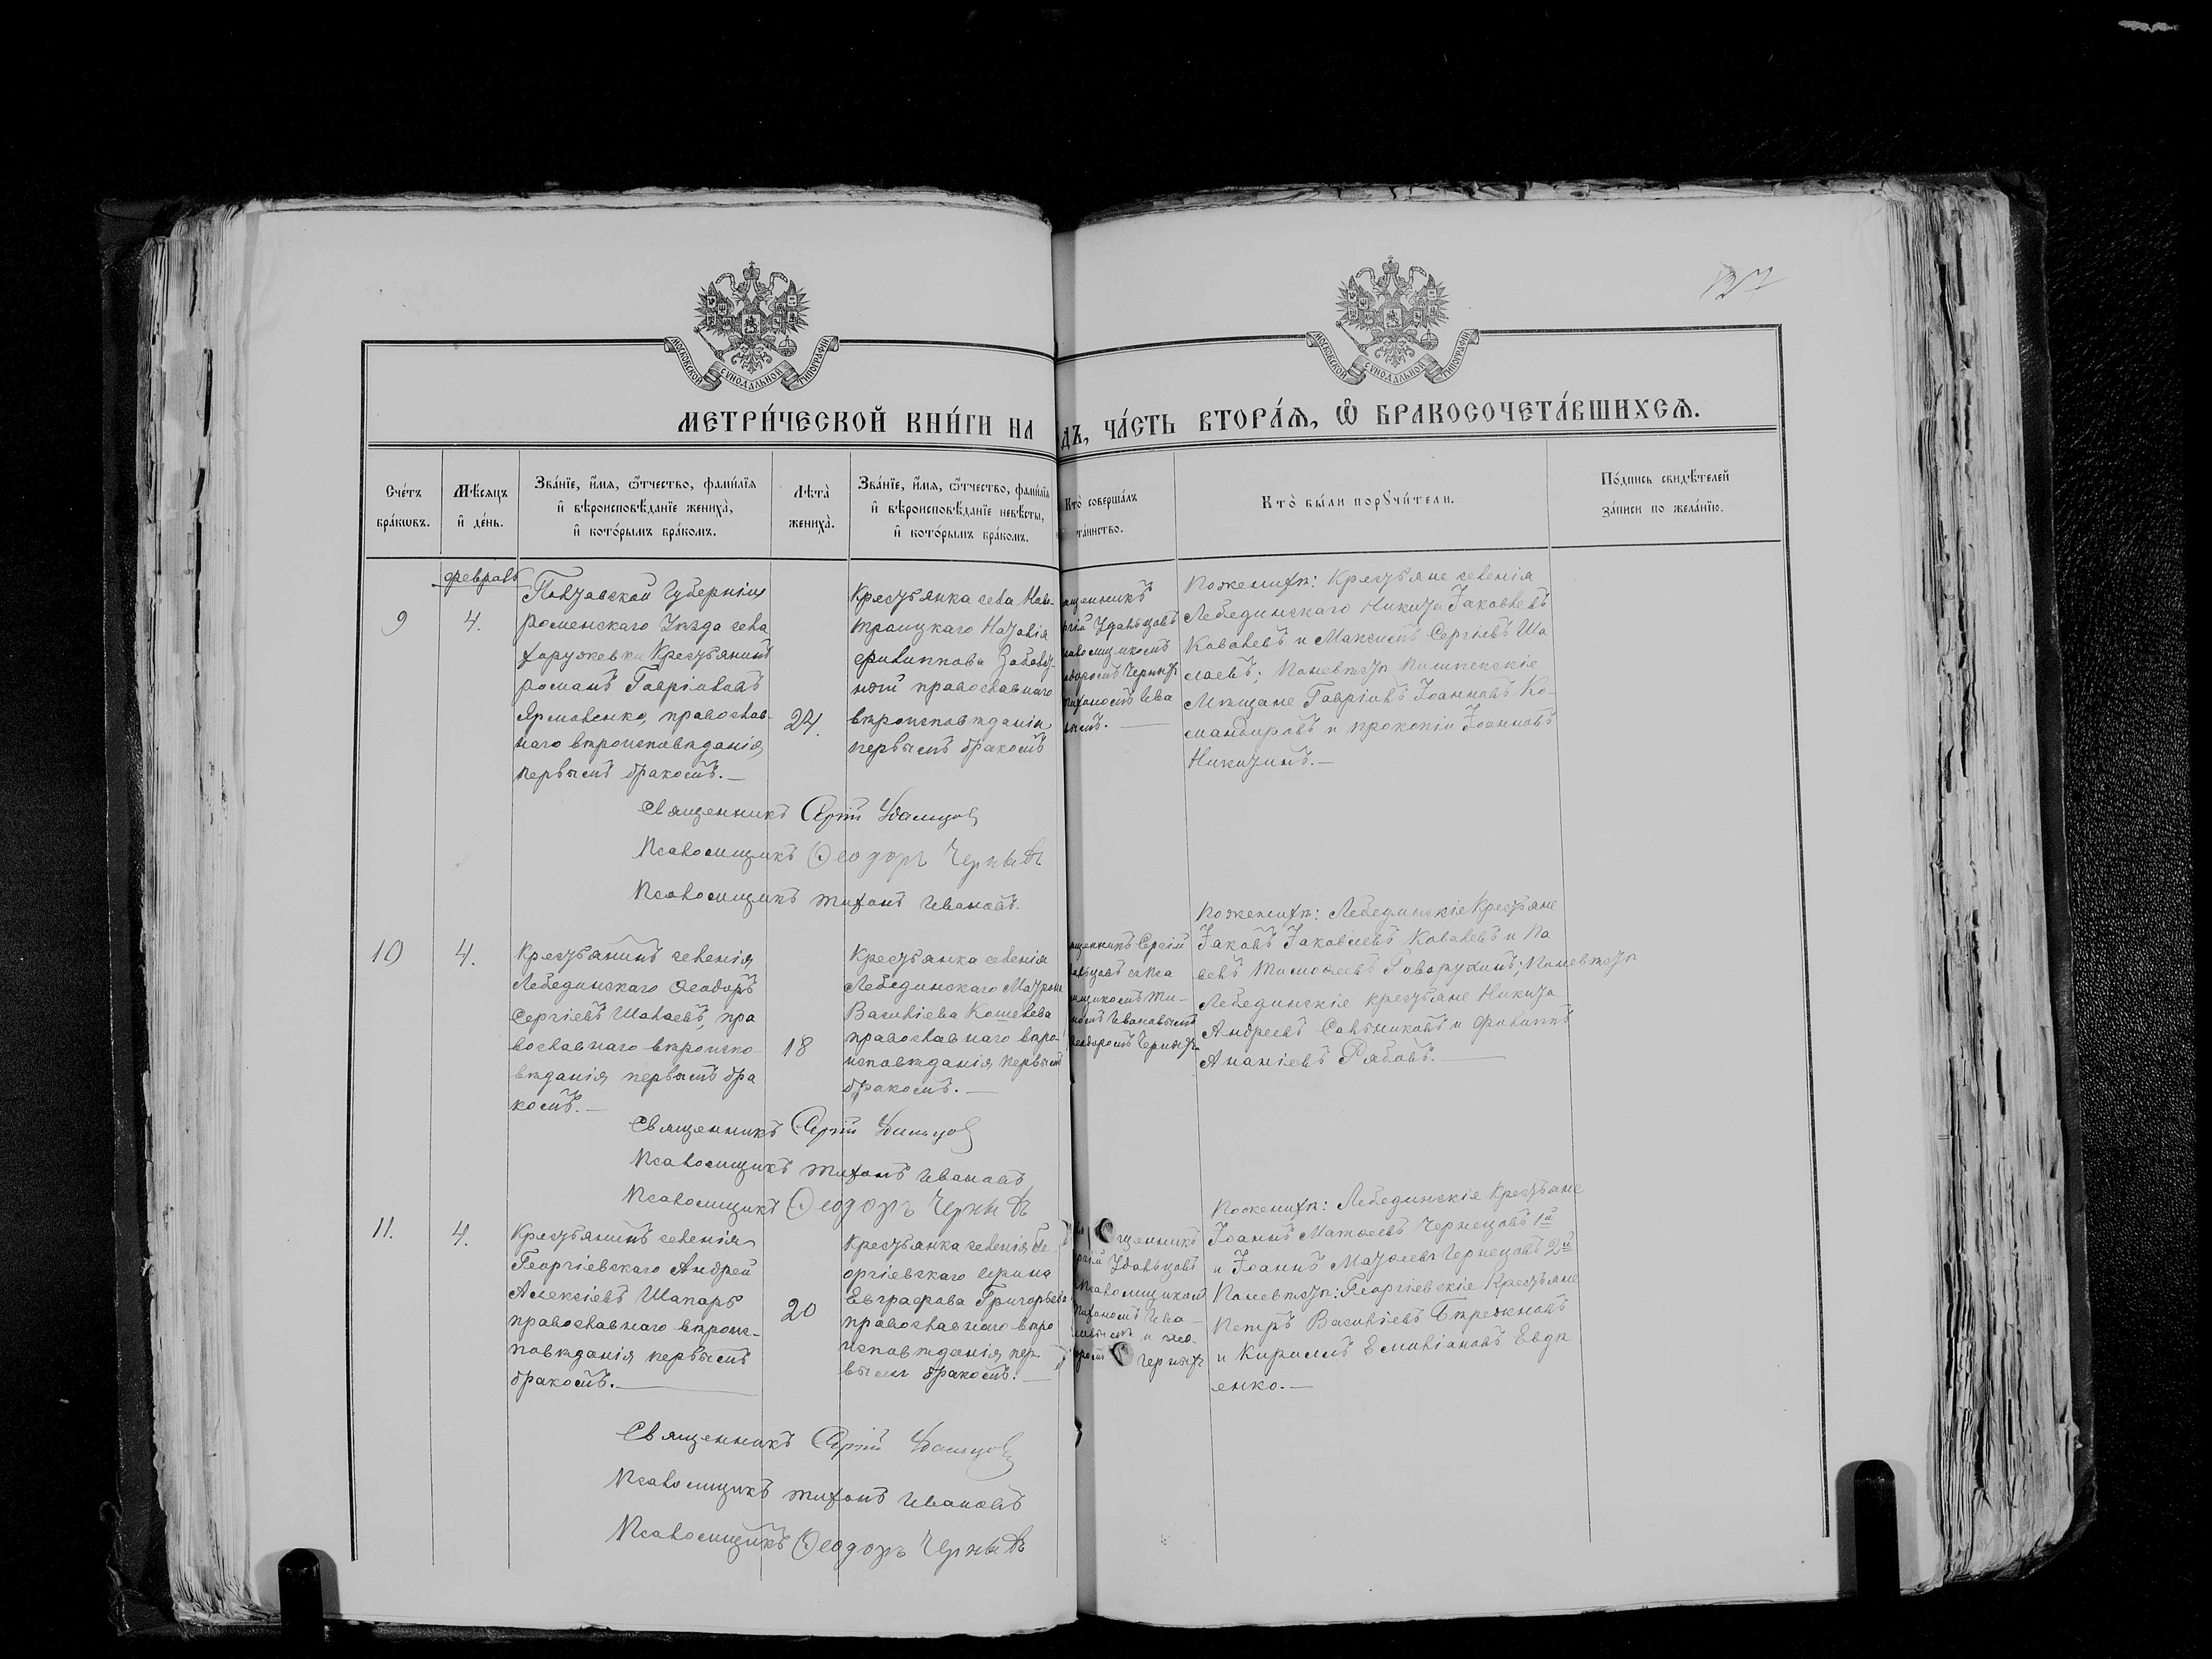 127
МОСКОВСКОЙ СѴНОДАЛЬНОЙ ТИПОГРАФІИ
МОСКОВСКОЙ СѴНОДАЛЬНОЙ ТИПОГРАФІИ
МЕТРИ́ЧЕСКОЙ КНИ́ГИ НА
ДЪ, ЧА́СТЬ ВТОРА́Ѧ, Ѽ БРАКОСОЧЕТА́ВШИХСѦ.
Сче́тъ
бра́кѡвъ.
Мѣ́сяцъ
и҆ де́нь.
Зва́нїе, и҆́мя, ѻ҆́тчество, фамѝлїя
и҆ вѣроисповѣ́данїе жениха̀,
и҆ кото́рымъ бра́комъ.
Лѣта̀
жениха̀.
Зва́нїе, и҆́мя, ѻ҆́тчество, фамѝлїя
и҆ вѣроисповѣ́данїе невѣ́сты,
и҆ кото́рымъ бра́комъ.
Кто̀ соверша́лъ
та́инство.
Кто̀ бы́ли порꙋчи́тели.
По́дпись свидѣ́телей
за́писи по жела́нїю.
февраль
9
4.
Полтавской Губерніи
Роменскаго Уѣзда села
Хоружевки Крестьянинъ
Романъ Гавріиловъ
Ярмоленко, православ-
наго вѣроисповѣданія,
первымъ бракомъ.—
24.
Крестьянка села Ново-
троицкаго Наталія
Филиппова
православнаго
вѣроисповѣданія
первымъ бракомъ
ященникъ
ргій Удальцовъ
саломщикомъ
одоромъ Черныхъ
Тихономъ Ива
вымъ.—
По женихѣ: Крестьяне селенія
Лебединскаго Никита Іаковлевъ
Ковалевъ и Максимъ Сергіевъ Ша
лаевъ; По невѣстѣ Пишпекскіе
Мѣщане Гавріилъ Іоанновъ Ко-
мандировъ и Прокопій Іоанновъ
Никитинъ.—
Священникъ Сергій Удальцовъ
Псаломщикъ Ѳеодоръ Черныхъ
Псаломщикъ Тихонъ Ивановъ.
10
4.
Крестьянинъ селенія
Лебединскаго Ѳеодоръ
Сергіевъ Шалаевъ, пра
вославнаго вѣроиспо-
вѣданія первымъ бра
комъ.—
18
Крестьянка селенія
Лебединскаго Матрона
Василіева Кошелева
православнаго вѣро-
исповѣданія первымъ
бракомъ.—
ященникъ Сергій
альцовъ съ пса
мщикомъ Ти-
номъ Ивановымъ
Ѳеодоромъ Черныхъ
По женихѣ: Лебединскіе Крестьяне
Іаковъ Іаковлевъ Ковалевъ и Па
велъ Тимоѳеевъ Говорухинъ; По невѣстѣ
Лебединскіе крестьяне Никита
Андреевъ Сальниковъ и Филиппъ
Ананіевъ Рябовъ.—
Священникъ Сергій Удальцовъ
Псаломщикъ Тихонъ Ивановъ
Псаломщикъ Ѳеодоръ Черныхъ
11.
4.
Крестьянинъ селенія
Георгіевскаго Андрей
Алексіевъ Шапарь
православнаго вѣроис-
повѣданія первымъ
бракомъ.—
20
Крестьянка селенія Ге-
оргіевскаго Ирина
Евграфова Григорьева
православнаго вѣро
исповѣданія пер-
вымъ бракомъ.—
щенникъ
ргій Удальцовъ
Псаломщиком
Тихономъ Ива-
новымъ и Ѳео-
оромъ Черныхъ
По женихѣ: Лебединскіе Крестьяне
Іоаннъ Матѳеевъ Чернецовъ 1й
и Іоаннъ Матѳеевъ Чернецовъ 2й
По невѣстѣ: Георгіевскіе Крестьяне
Петръ Василіевъ Бѣрежновъ
и Кириллъ Емиліановъ Евдо
енко.—
Священникъ Сергій Удальцовъ
Псаломщикъ Тихонъ Ивановъ
Псаломщикъ Ѳеодоръ Черныхъ